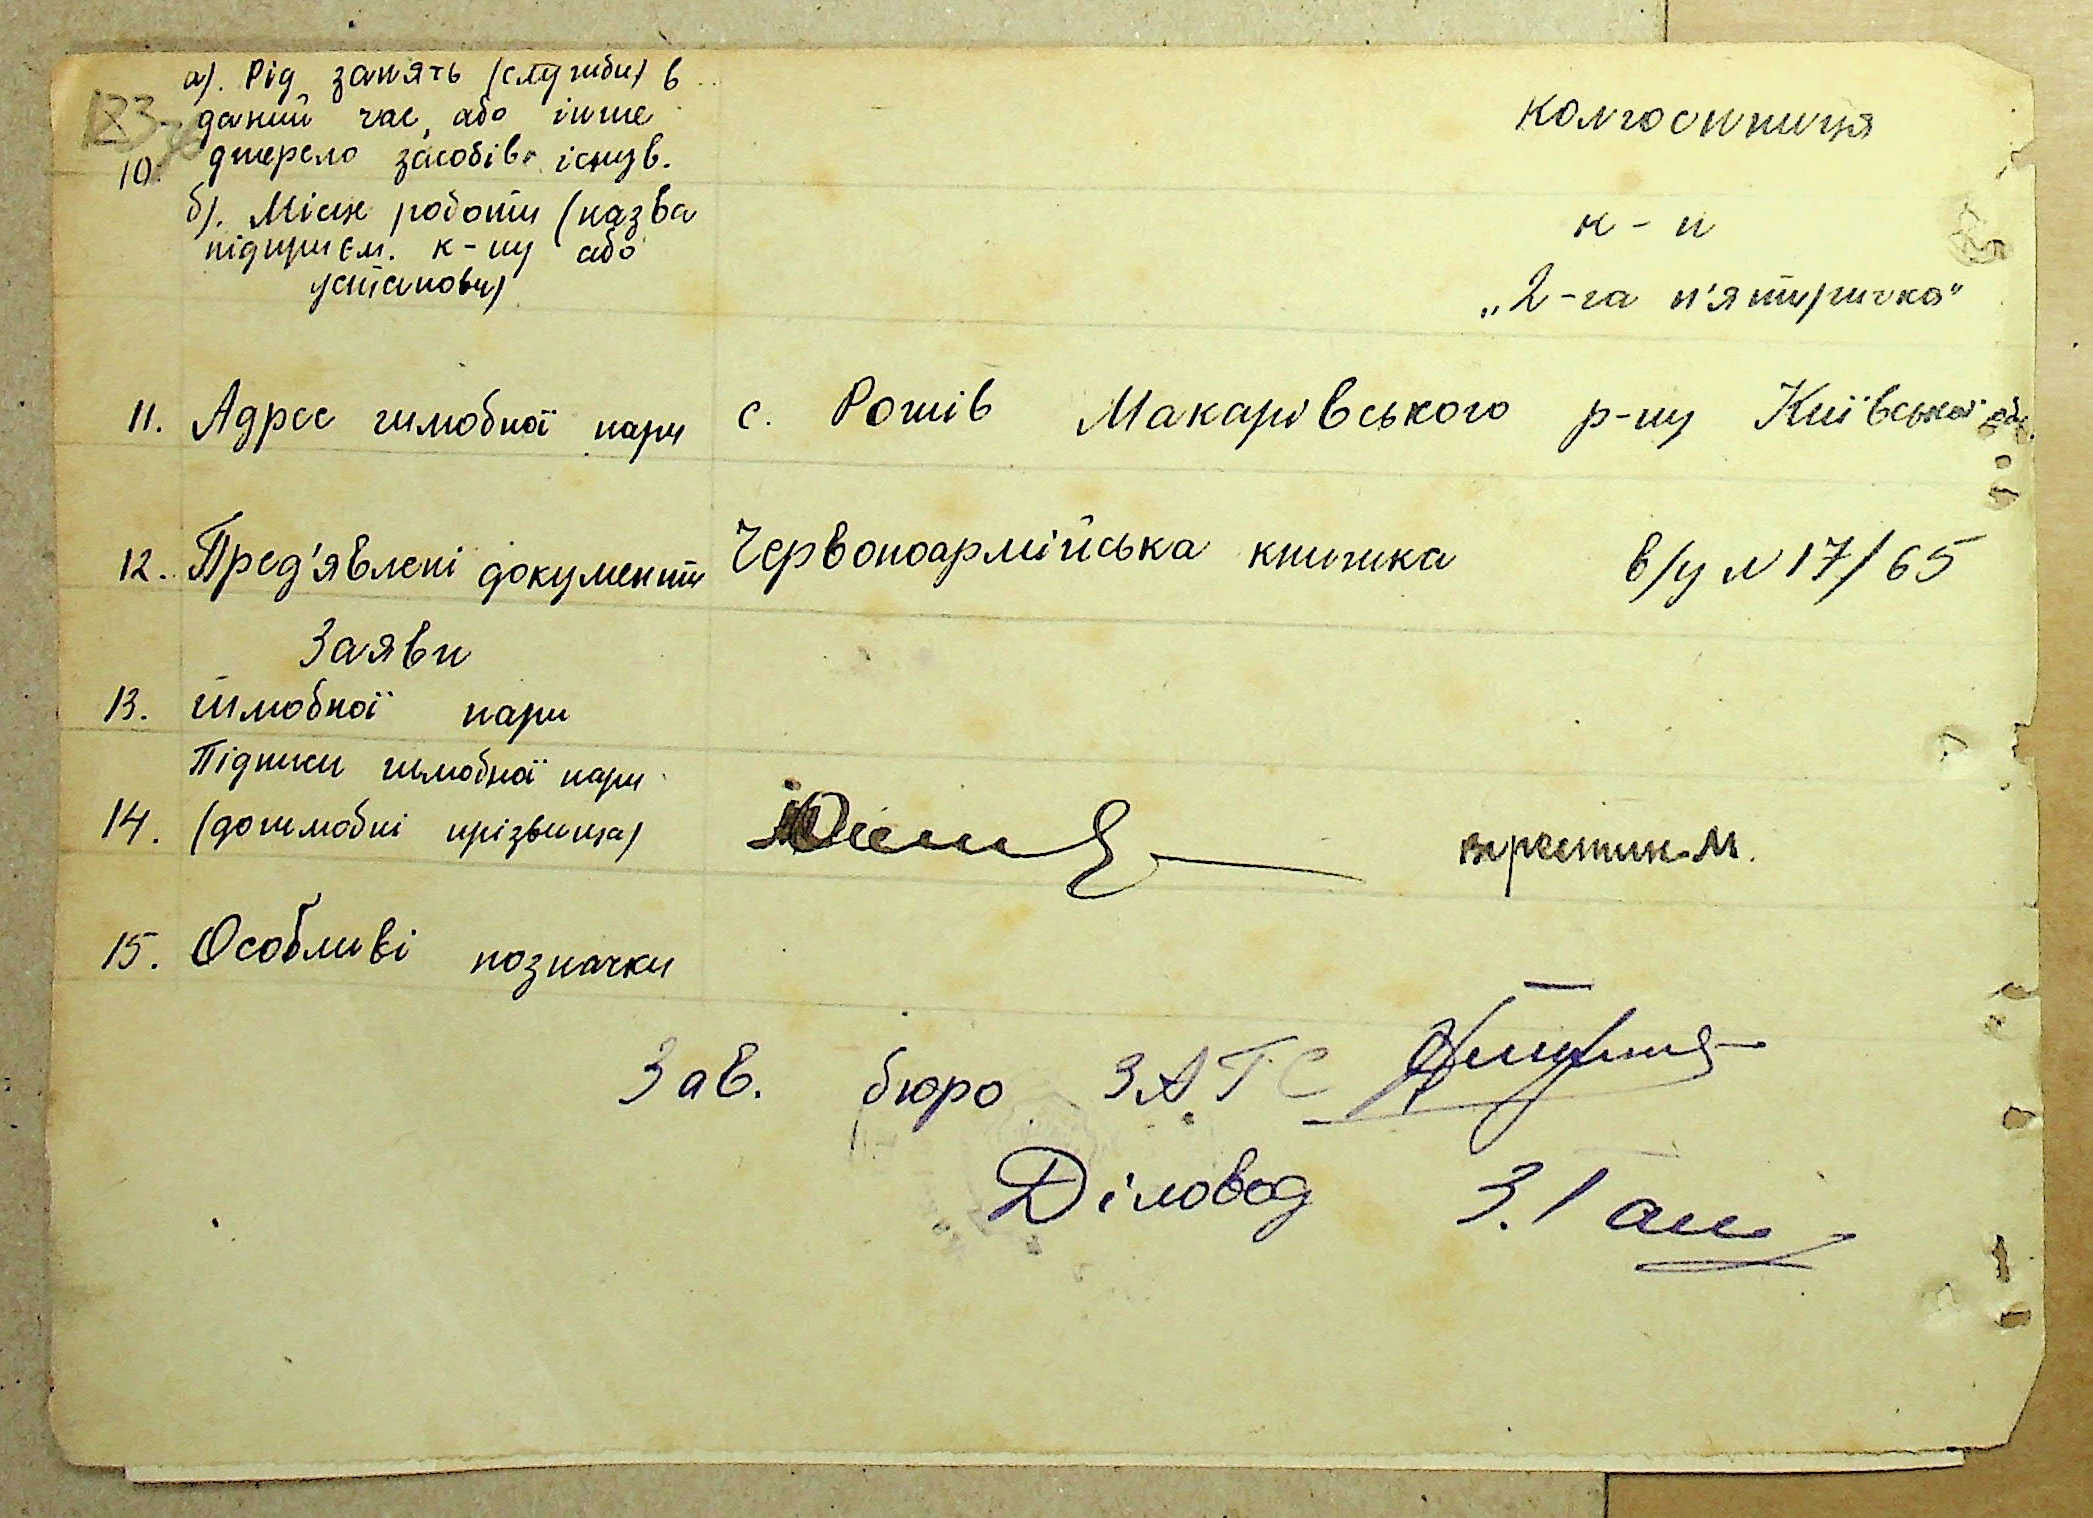 а). Рід занять (служби) в
даний час, або інше
10. джерело засобів існув.
колгоспниця
б). Місце роботи (назва
підприєм. к-пу або
установи)
к-п
„2-га п'ятирічка"
11. Адрес шлюбної пари с. Рожів Макарівського р-ну Київської обл.
12. Пред'явлені документи Червоноармійська книжка в/ч N 17/65
Заяви
13. шлюбної пари
Підписи шлюбної пари
14. (дошлюбні прізвища)
15. Особливі позначки
Зав. бюро ЗАГС
Діловод